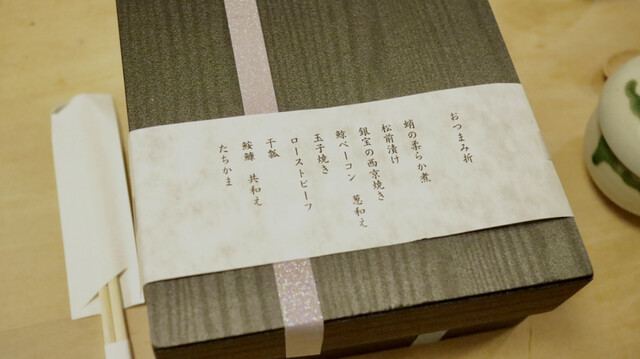 おつまみ折
蛸の柔らか煮
松前漬け
銀宝の西京焼き
鯨ベーコン 葱和え
玉子焼き
ローストビーフ
干瓢
鮟鱇 共和え
たちかま